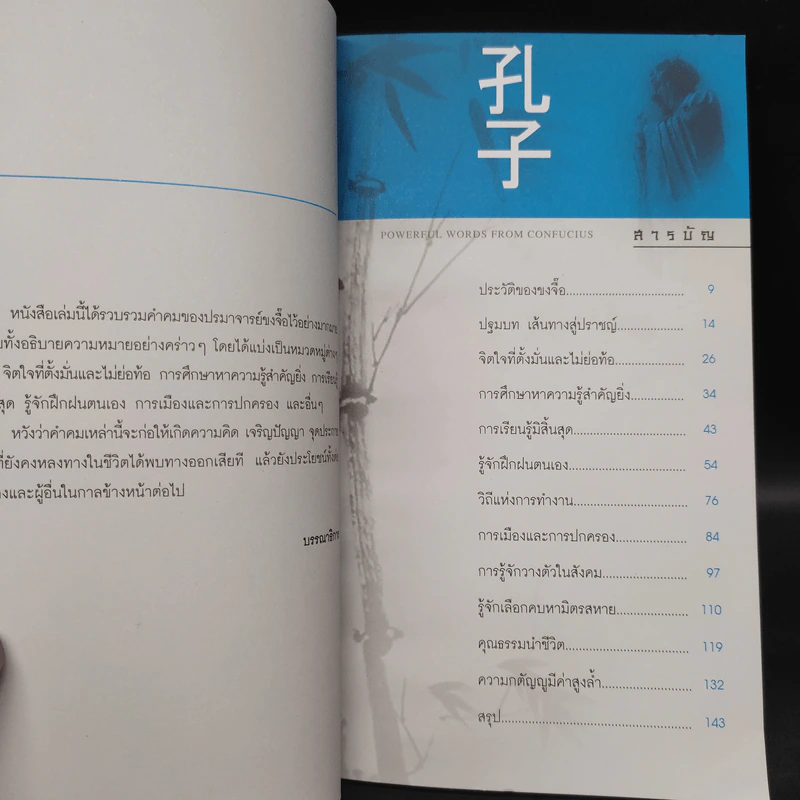 หนังสือเล่มนี้ได้รวบรวมคำคมของปรมาจารย์ขงจื๊อไว้อย่างมากมาย
ทั้งอธิบายความหมายอย่างคร่าวๆ โดยได้แบ่งเป็นหมวดหมู่ต่างๆ
จิตใจที่ตั้งมั่นและไม่ย่อท้อ การศึกษาหาความรู้สำคัญยิ่ง การเรียนรู้
สุด รู้จักฝึกฝนตนเอง การเมืองและการปกครอง และอื่นๆ
หวังว่าคำคมเหล่านี้จะก่อให้เกิดความคิด เจริญปัญญา จุดประกาย
ที่ยังคงหลงทางในชีวิตได้พบทางออกเสียที แล้วยังประโยชน์ทั้งต่อ
และผู้อื่นในกาลข้างหน้าต่อไป
บรรณาธิการ
孔
子
POWERFUL WORDS FROM CONFUCIUS
สารบัญ
ประวัติของขงจื๊อ 9
ปฐมบท เส้นทางสู่ปราชญ์ 14
จิตใจที่ตั้งมั่นและไม่ย่อท้อ 26
การศึกษาหาความรู้สำคัญยิ่ง 34
การเรียนรู้มิสิ้นสุด 43
รู้จักฝึกฝนตนเอง 54
วิถีแห่งการทำงาน 76
การเมืองและการปกครอง 84
การรู้จักวางตัวในสังคม 97
รู้จักเลือกคบหามิตรสหาย 110
คุณธรรมนำชีวิต 119
ความกตัญญูมีค่าสูงล้ำ 132
สรุป 143